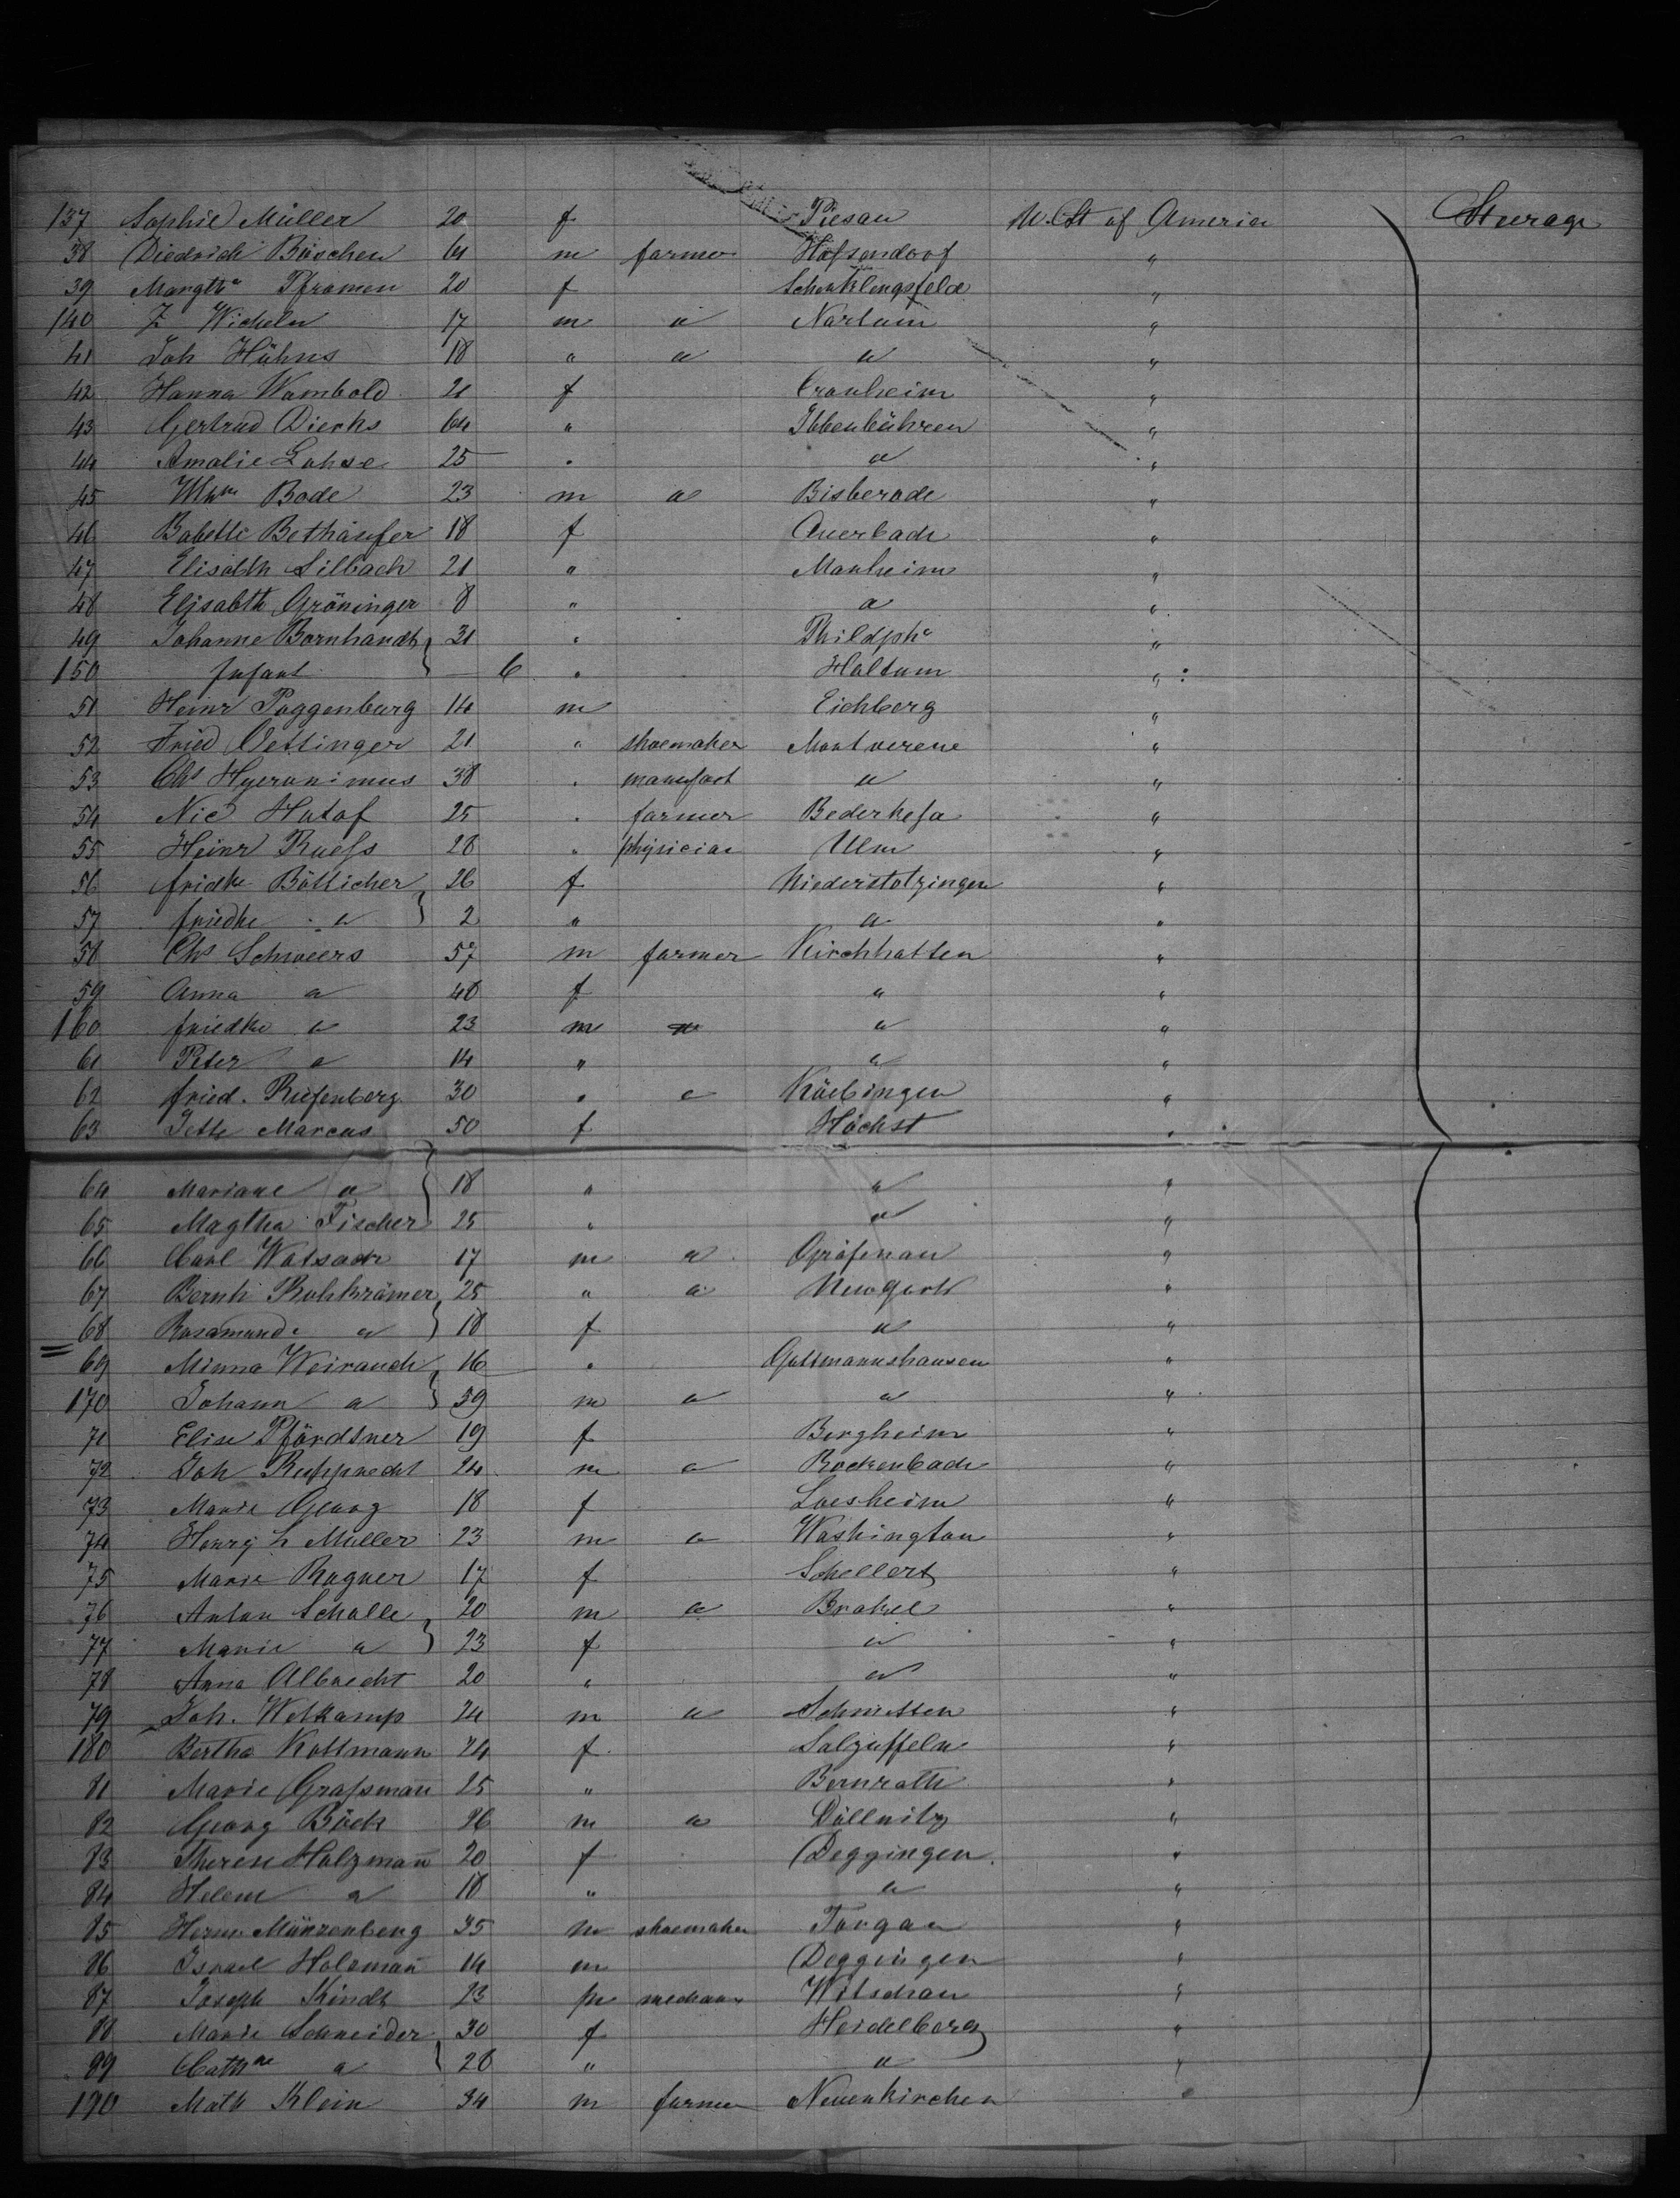 137 Sophie Müller 20 f Piesau U. St of America Steerage
38 Diedrich Büschen 61 m farmer Hofsendorf "
39 Margtha Pframen 20 f Schenklengsfeld "
140 Z Wicheln 17 m " Nartum "
41 Joh Hühns 18 " " " "
42 Hanna Wambold 21 f Cronheim "
43 Gertrud Dierks 64 " Ibbenbühren "
44 Amalie Lohse 25 " " "
45 Whm Bode 23 m " Bisberode "
46 Babette Bethäufer 18 f Auerbach "
47 Elisabth Silbach 21 " Manheim "
48 Elisabth Gröninger 8 " " "
49 Johanne Bornhandt 31 " Phildpha "
150 Infant 6 " Holtum "
51 Heinr Poggenburg 14 m Eichberg "
52 Fried Oettinger 21 " shoemaker Montverene "
53 Chs Hyeronimus 38 " manufact " "
54 Nic Hotof 25 " farmer Bederkesa "
55 Heinr Ruess 28 " physician Ulm "
56 Fridke Bötticher 26 f Niederstotzingen "
57 Friedke " 2 " " "
58 Chs Schweers 57 m farmer Kirchhatten "
59 Anna " 48 f " "
160 Friedke " 23 m " "
61 Peter " 14 " " "
62 Fried. Riefenberg 30 " " Köebingen "
63 Jette Marcus 50 f Höchst "
64 Mariane " 18 " " "
65 Magtha Fischer 25 " " "
66 Carl Watsack 17 m " Gräfenau "
67 Bernh Ruhkrämer 25 " " Newyork "
68 Rosamunde " 18 f " "
69 Minna Weirauch 16 " Guttmannshausen "
170 Johann " 59 m " " "
71 Elise Pfördtner 19 f Bergheim "
72 Joh Rupprecht 24 m " Rockenbach "
73 Marie Georg 18 f Loesheim "
74 Henry L Müller 23 m " Washington "
75 Marie Rugner 17 f Schellert "
76 Anton Schalle 20 m " Brakel "
77 Marie " 23 f " "
78 Anna Albrecht 20 " " "
79 Joh. Welkamp 24 m " Schmetten "
180 Bertha Kottmann 24 f Salzuffeln "
81 Marie Grafsman̄ 25 " Bernrath "
82 Georg Böck 26 m " Döllnitz "
83 Therese Holzman̄ 20 f Deggingen "
84 Helene " 18 " " "
85 Herm. Münzenberg 35 m shoemaker Torgau "
86 Israel Holzman̄ 14 m Deggingen "
87 Joseph Kindt 23 m mechanic Witschau "
88 Marie Schneider 30 f Heidelberg "
89 Cathne " 28 " " "
190 Math Klein 34 m farmer Neuenkirchen "